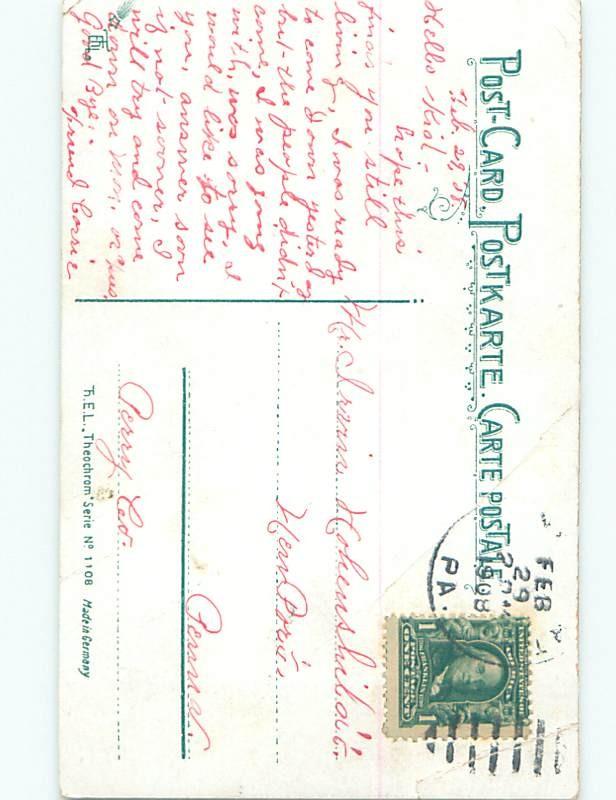 POST-CARD. POSTKARTE. CARTE POSTALE
Feb. 29, 08.
Hello Kid:-
hope this
finds you still
living, I was ready
to come down yesterday
but the people didn't
come, I was going
with, was sorry. I
would like to see
you, answer soon
if not sooner, I
will try and come
down on Mon, or Tues,
Good Bye:-
friend Carrie
FEB
29
1908
PA.
1
FRANKLIN
ONE CENT
1
Mr. Irvin Hohenshildt.
New Bloomfield
Penna.
Perry Co.
T.E.L., Theochrom' Serie Nº 1108 Made in Germany